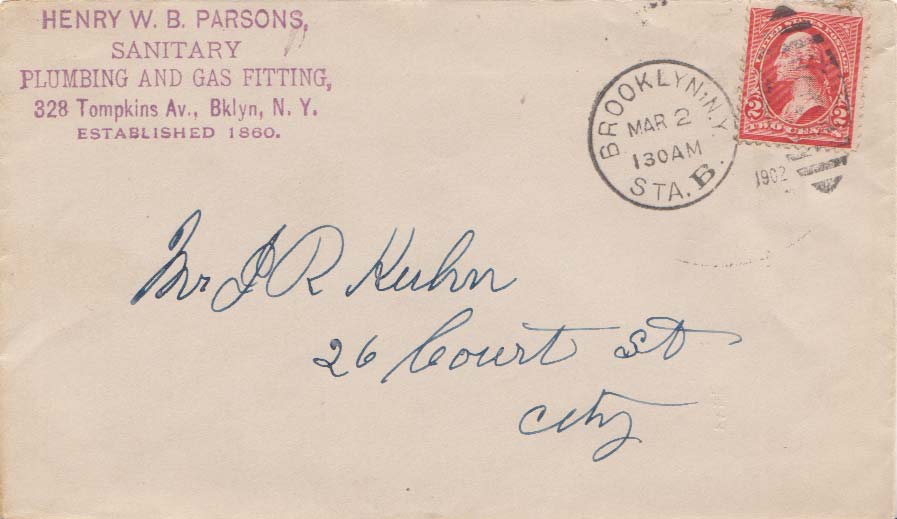 HENRY W. B. PARSONS,
SANITARY
PLUMBING AND GAS FITTING,
328 Tompkins Av., Bklyn, N. Y.
ESTABLISHED 1860.
BROOKLYN, N.Y.
MAR 2
130AM
STA. B.
1902
2 TWO CENTS 2
Mr J R Kuhn
26 Court St
City